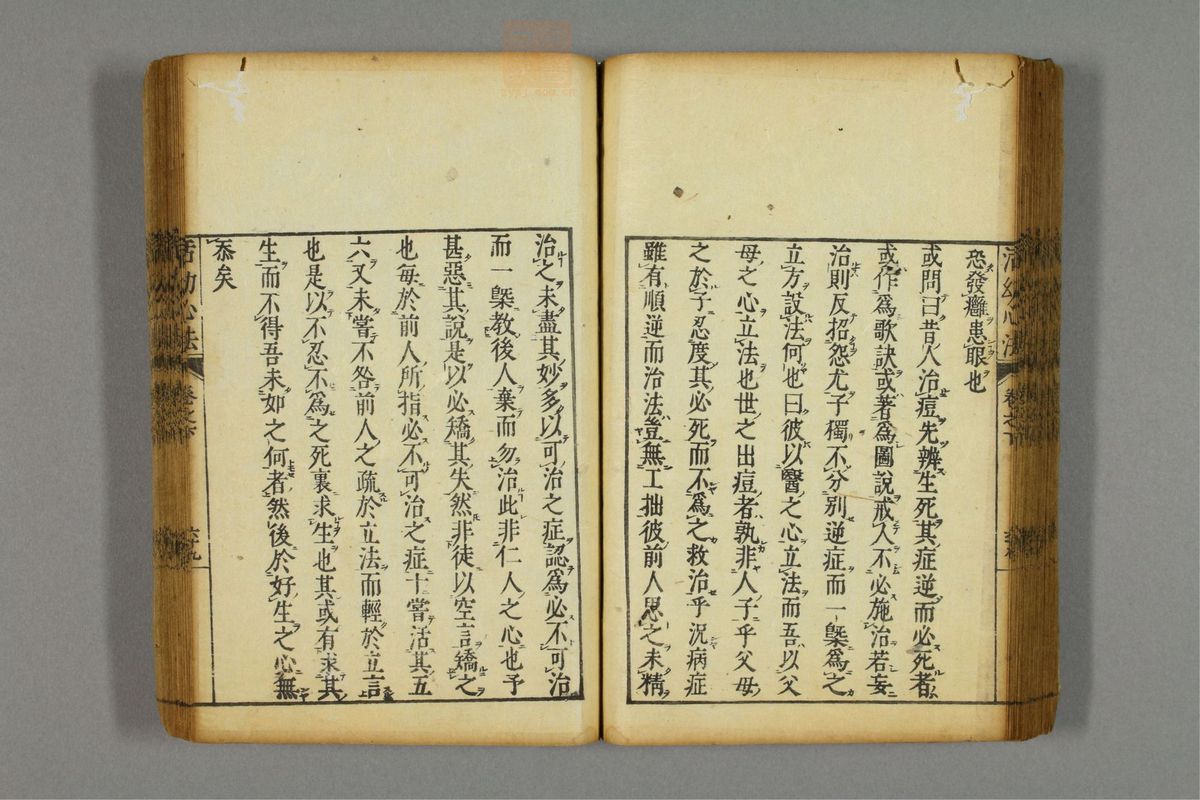 活幼心法 卷之下
恐發癰患眼也
或問曰昔人治痘先辨生死其症逆而必死者
或作爲歌訣或著爲圖說戒人不必施治若妄
治則反招怨尤子獨不分别逆症而一槩爲之
立方設法何也曰彼以醫之心立法而吾以父
母之心立法也世之出痘者孰非人子乎父母
之於子忍度其必死而不爲之救治乎況病症
雖有順逆而治法豈無工拙彼前人思之未精
治之未盡其妙多以可治之症認爲必不可治
而一槩教後人棄而勿治此非仁人之心也予
甚惡其說是以必矯其失然非徒以空言矯之
也每於前人所指必不可治之症十嘗活其五
六又未嘗不咎前人之疏於立法而輕於立言
也是以不忍不爲之死裏求生也其或有求其
生而不得吾未如之何者然後於好生之心無
忝矣
活幼心法 卷之下